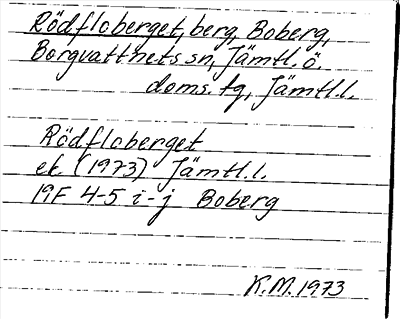 Rödfloberget, berg, Boberg,
Borgvattnets sn, Jämtl. ö.
doms. tg, Jämtl.l.
Rödfloberget
ek (1973) Jämtl.l.
19F 4-5 i-j Boberg
K.M. 1973